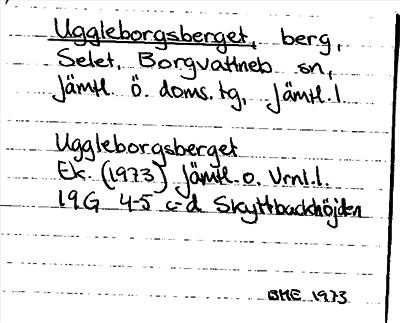 Uggleborgsberget, berg,
Selet, Borgvattneb sn,
Jämtl. ö. doms.tg, Jämtl. l.
Uggleborgsberget
Ek. (1973) Jämtl. o. Vrnl. l.
19G 4-5 c-d Skyttbackhöjden
BME 1973